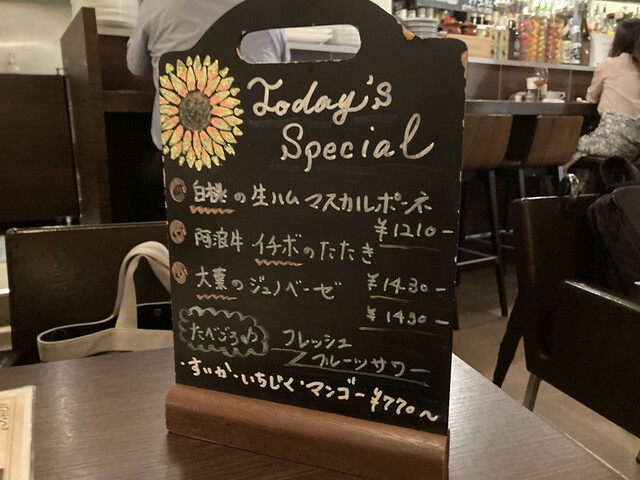 Today's
Special
白桃の生ハムマスカルポーネ
¥1210-
阿波牛イチボのたたき
¥1430-
大葉のジェノベーゼ
¥1430-
たべごろ♪ フレッシュ
フルーツサワー
・すいか・いちじく・マンゴー ¥770~